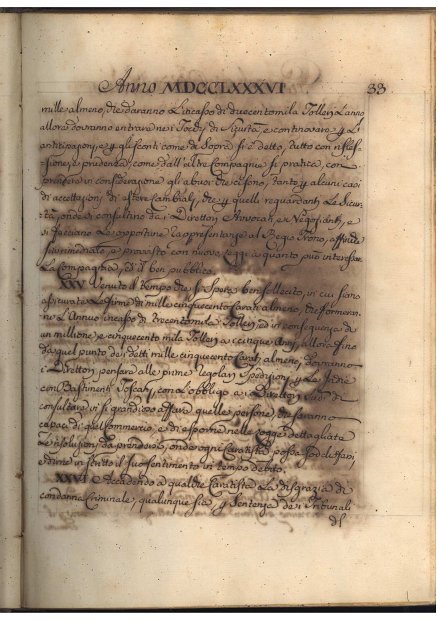 Anno MDCCLXXXVI 33
mille almeno, che daranno L'incasso di duecentomila Tolleri L'anno
allora dovranno entrare ne i di Sigurtà, e continovare p L'
anticipazioni, e p gli sconti come di Sopra si è detto, detto con rifles-
sione, e prudenza, come dall'altre Compagnie si pratica, con
prendere in considerazione gli abusi che si sono, tanto p alcuni casi
di accettazioni di altere Cambiali, che p quelli reguardanti Le Sicur-
tà, onde si consultino da i Direttori Avvocati, e i Negozianti, e
si facciano Le opportune rappresentanze al Regio Trono, affinchè
sia rimediato, e provvisto con nuove Leggi a quanto può interessare
La Compagnia, ed il ben pubblico.
XXV Venuto il tempo che si Spera ben sollecito, in cui siano
assicurate Le firme di mille cinquecento Caratti almeno, che formeran-
no L'Annuo incasso di Trecentomila Tolleri, ed in conseguenza di
un millione, e cinquecento mila Tolleri a i cinque Anni, allora fino
da quel punto de i detti mille cinquecento Caratti almeno, dovranno
i Direttori pensare alle prime regolari Spedizioni p Le Indie
con Bastimenti Toscani, con L'obbligo a i Direttori Sud.i di
consultare in sì grandioso affare quelle persone, che saranno
capaci di quel Commercio, e di esporne nelle Logge dettagliate
Le risoluzioni da prendersi, onde ogni Caratista possa
e dirne in scritto il suo sentimento in tempo debito.
XXVI Accadendo a qualche Caratista La disgrazia di
condanna Criminale, qualunque sia, p Sentenza de i Tribunali